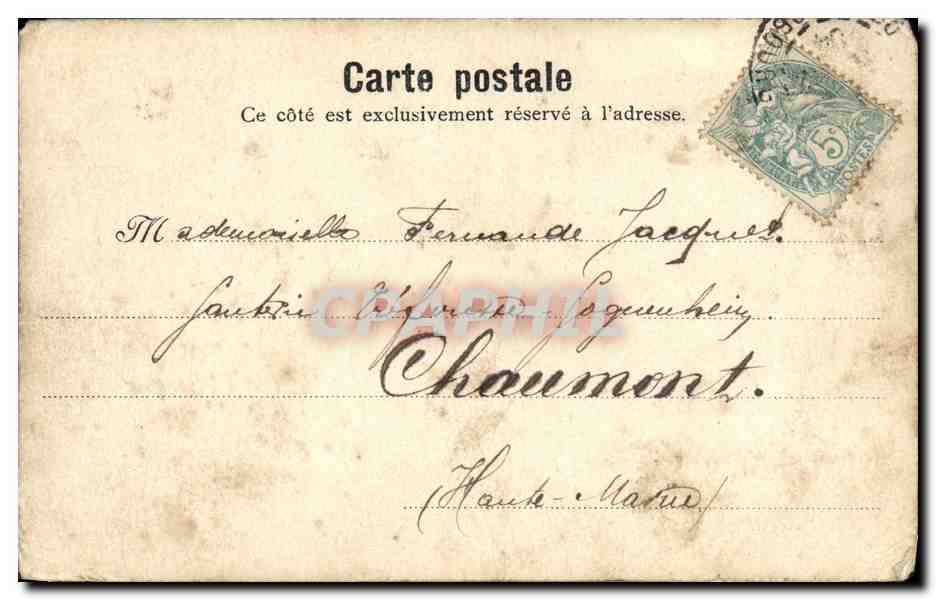 Carte postale
Ce côté est exclusivement réservé à l'adresse.
5c
POSTES
Mademoiselle Fernande Jacques.
Ganterie Tréfousse - Goguenheim.
CPAPHIL
Chaumont.
(Haute-Marne)